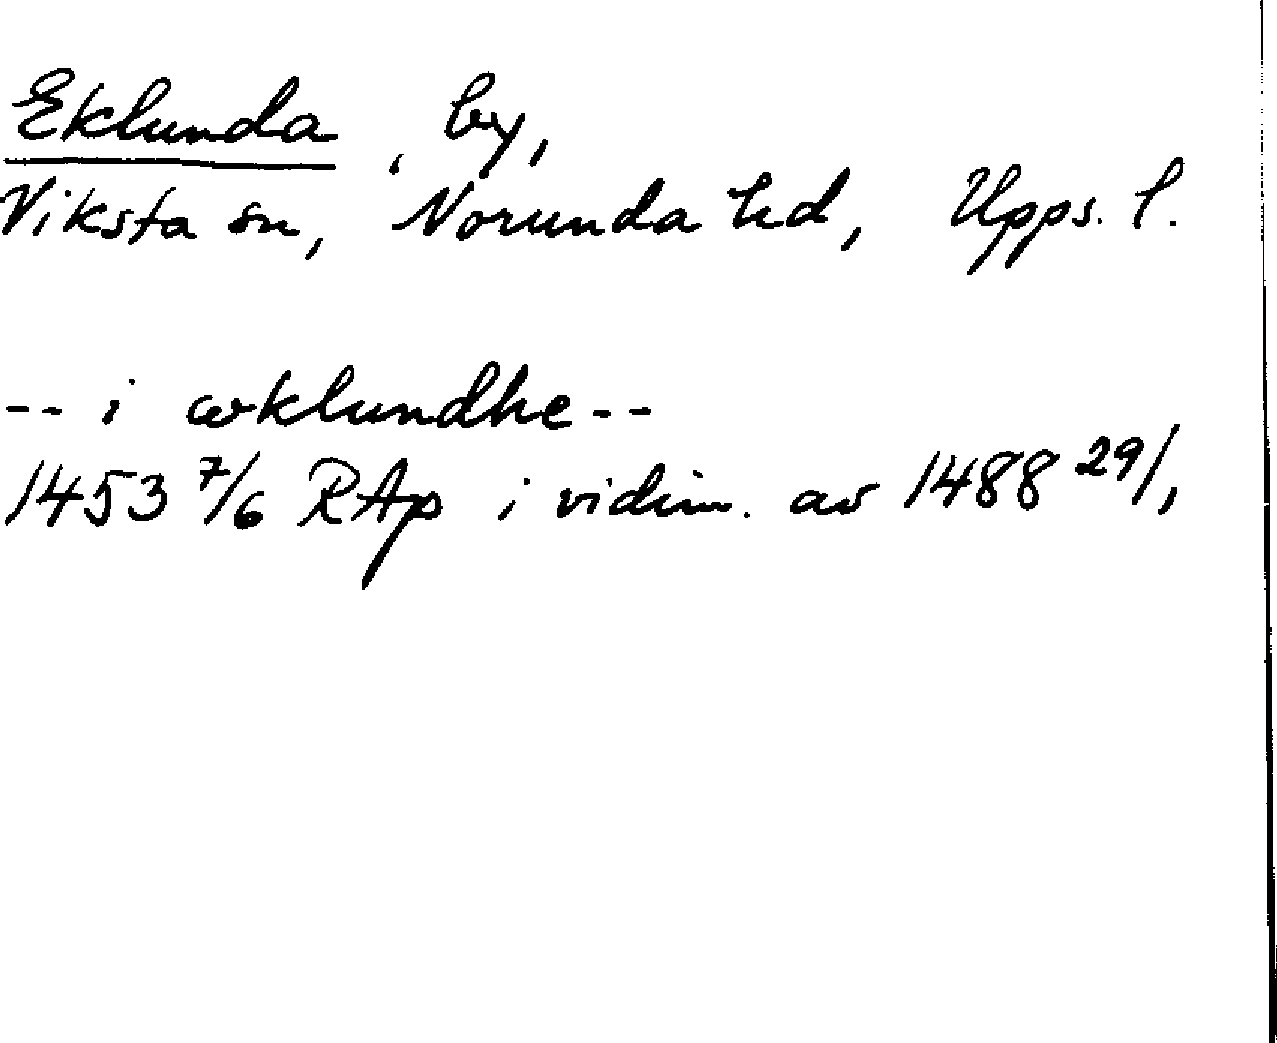 Eklunda, by,
Viksta sn, Norunda hd, Upps. l.
-- i æklundhe --
1453 7/6 RAp i vidim. av 1488 29/1